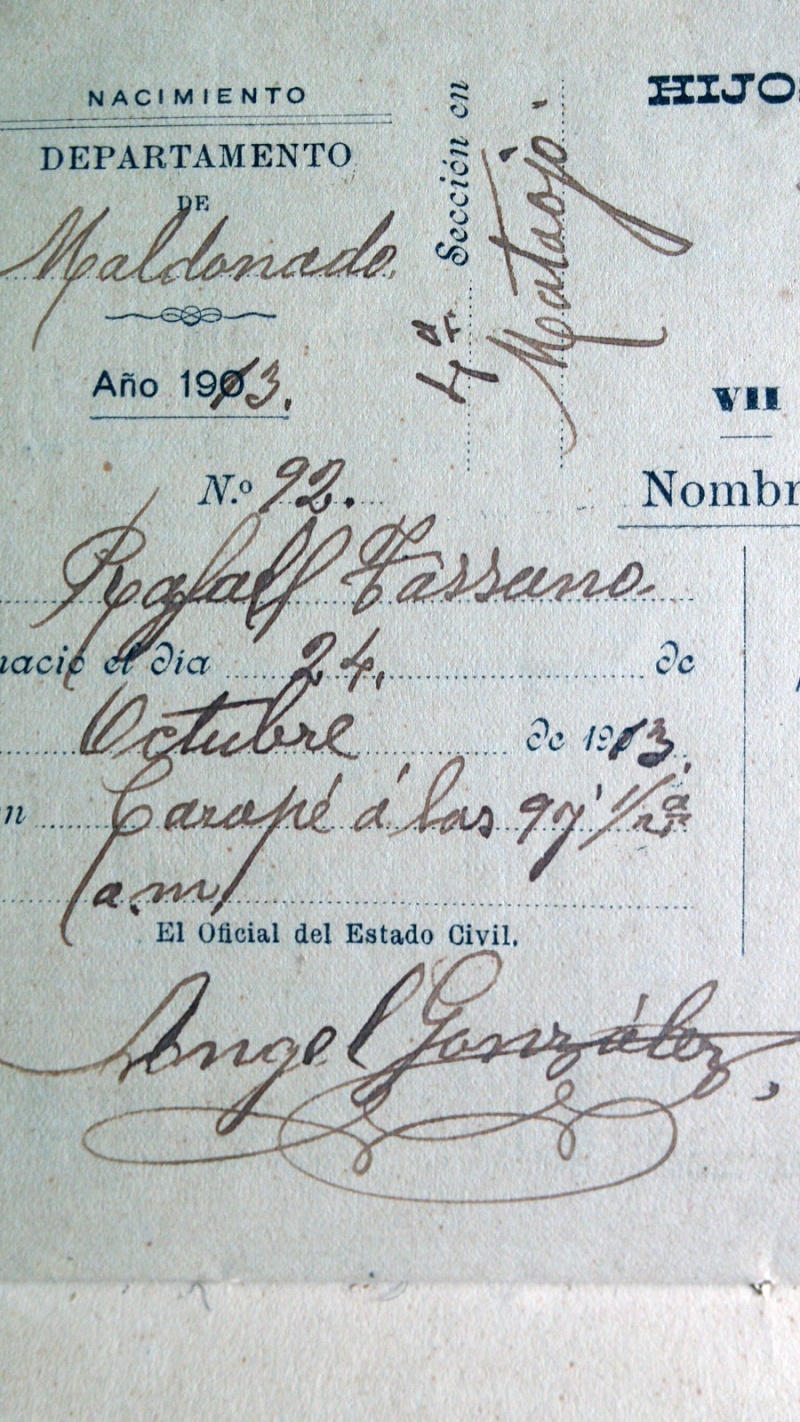 NACIMIENTO
DEPARTAMENTO
DE
Maldonado
Año 1913.
4ª Sección en
Mataojo.
N.º 92.
Rafael Tassano
nació el día 24. de
Octubre de 1913.
n Carapé á las 9 y 1/2
a.m.
El Oficial del Estado Civil,
Angel González,
HIJOS
VII
Nombr